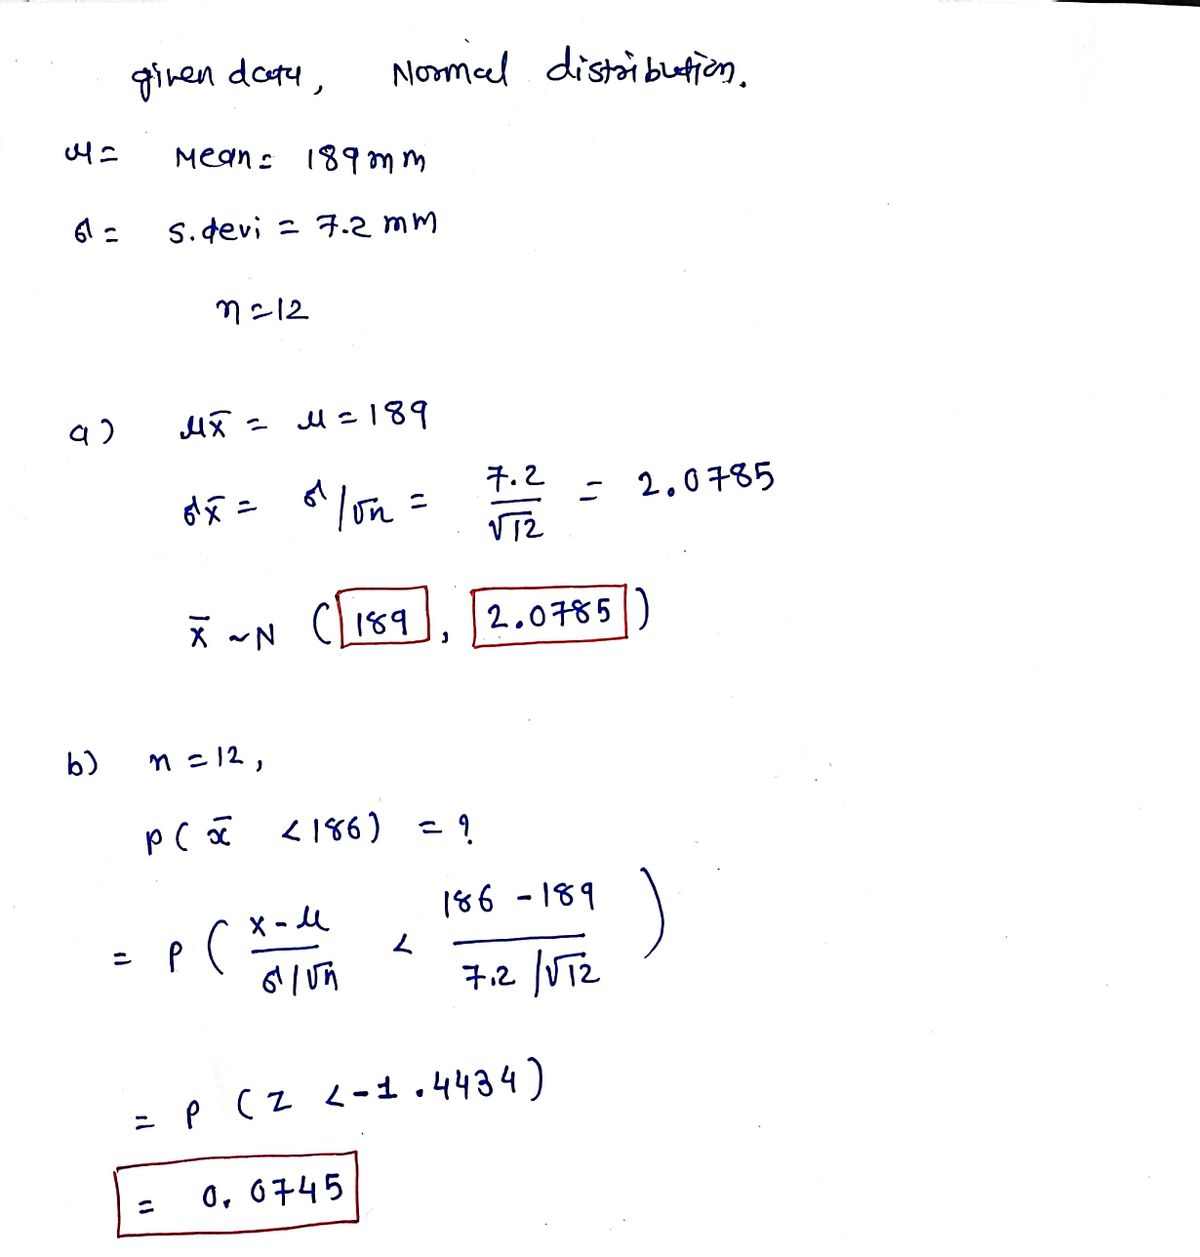 given data, Normal distribution.
μ = Mean = 189 mm
σ = s.devi = 7.2 mm
n = 12
a) μx̄ = μ = 189
σx̄ = σ/√n = 7.2/√12 = 2.0785
x̄ ~ N (189, 2.0785)
b) n = 12,
P(x̄ < 186) = ?
= P( x-μ / σ/√n < 186 - 189 / 7.2/√12 )
= P (Z < -1.4434)
= 0.0745